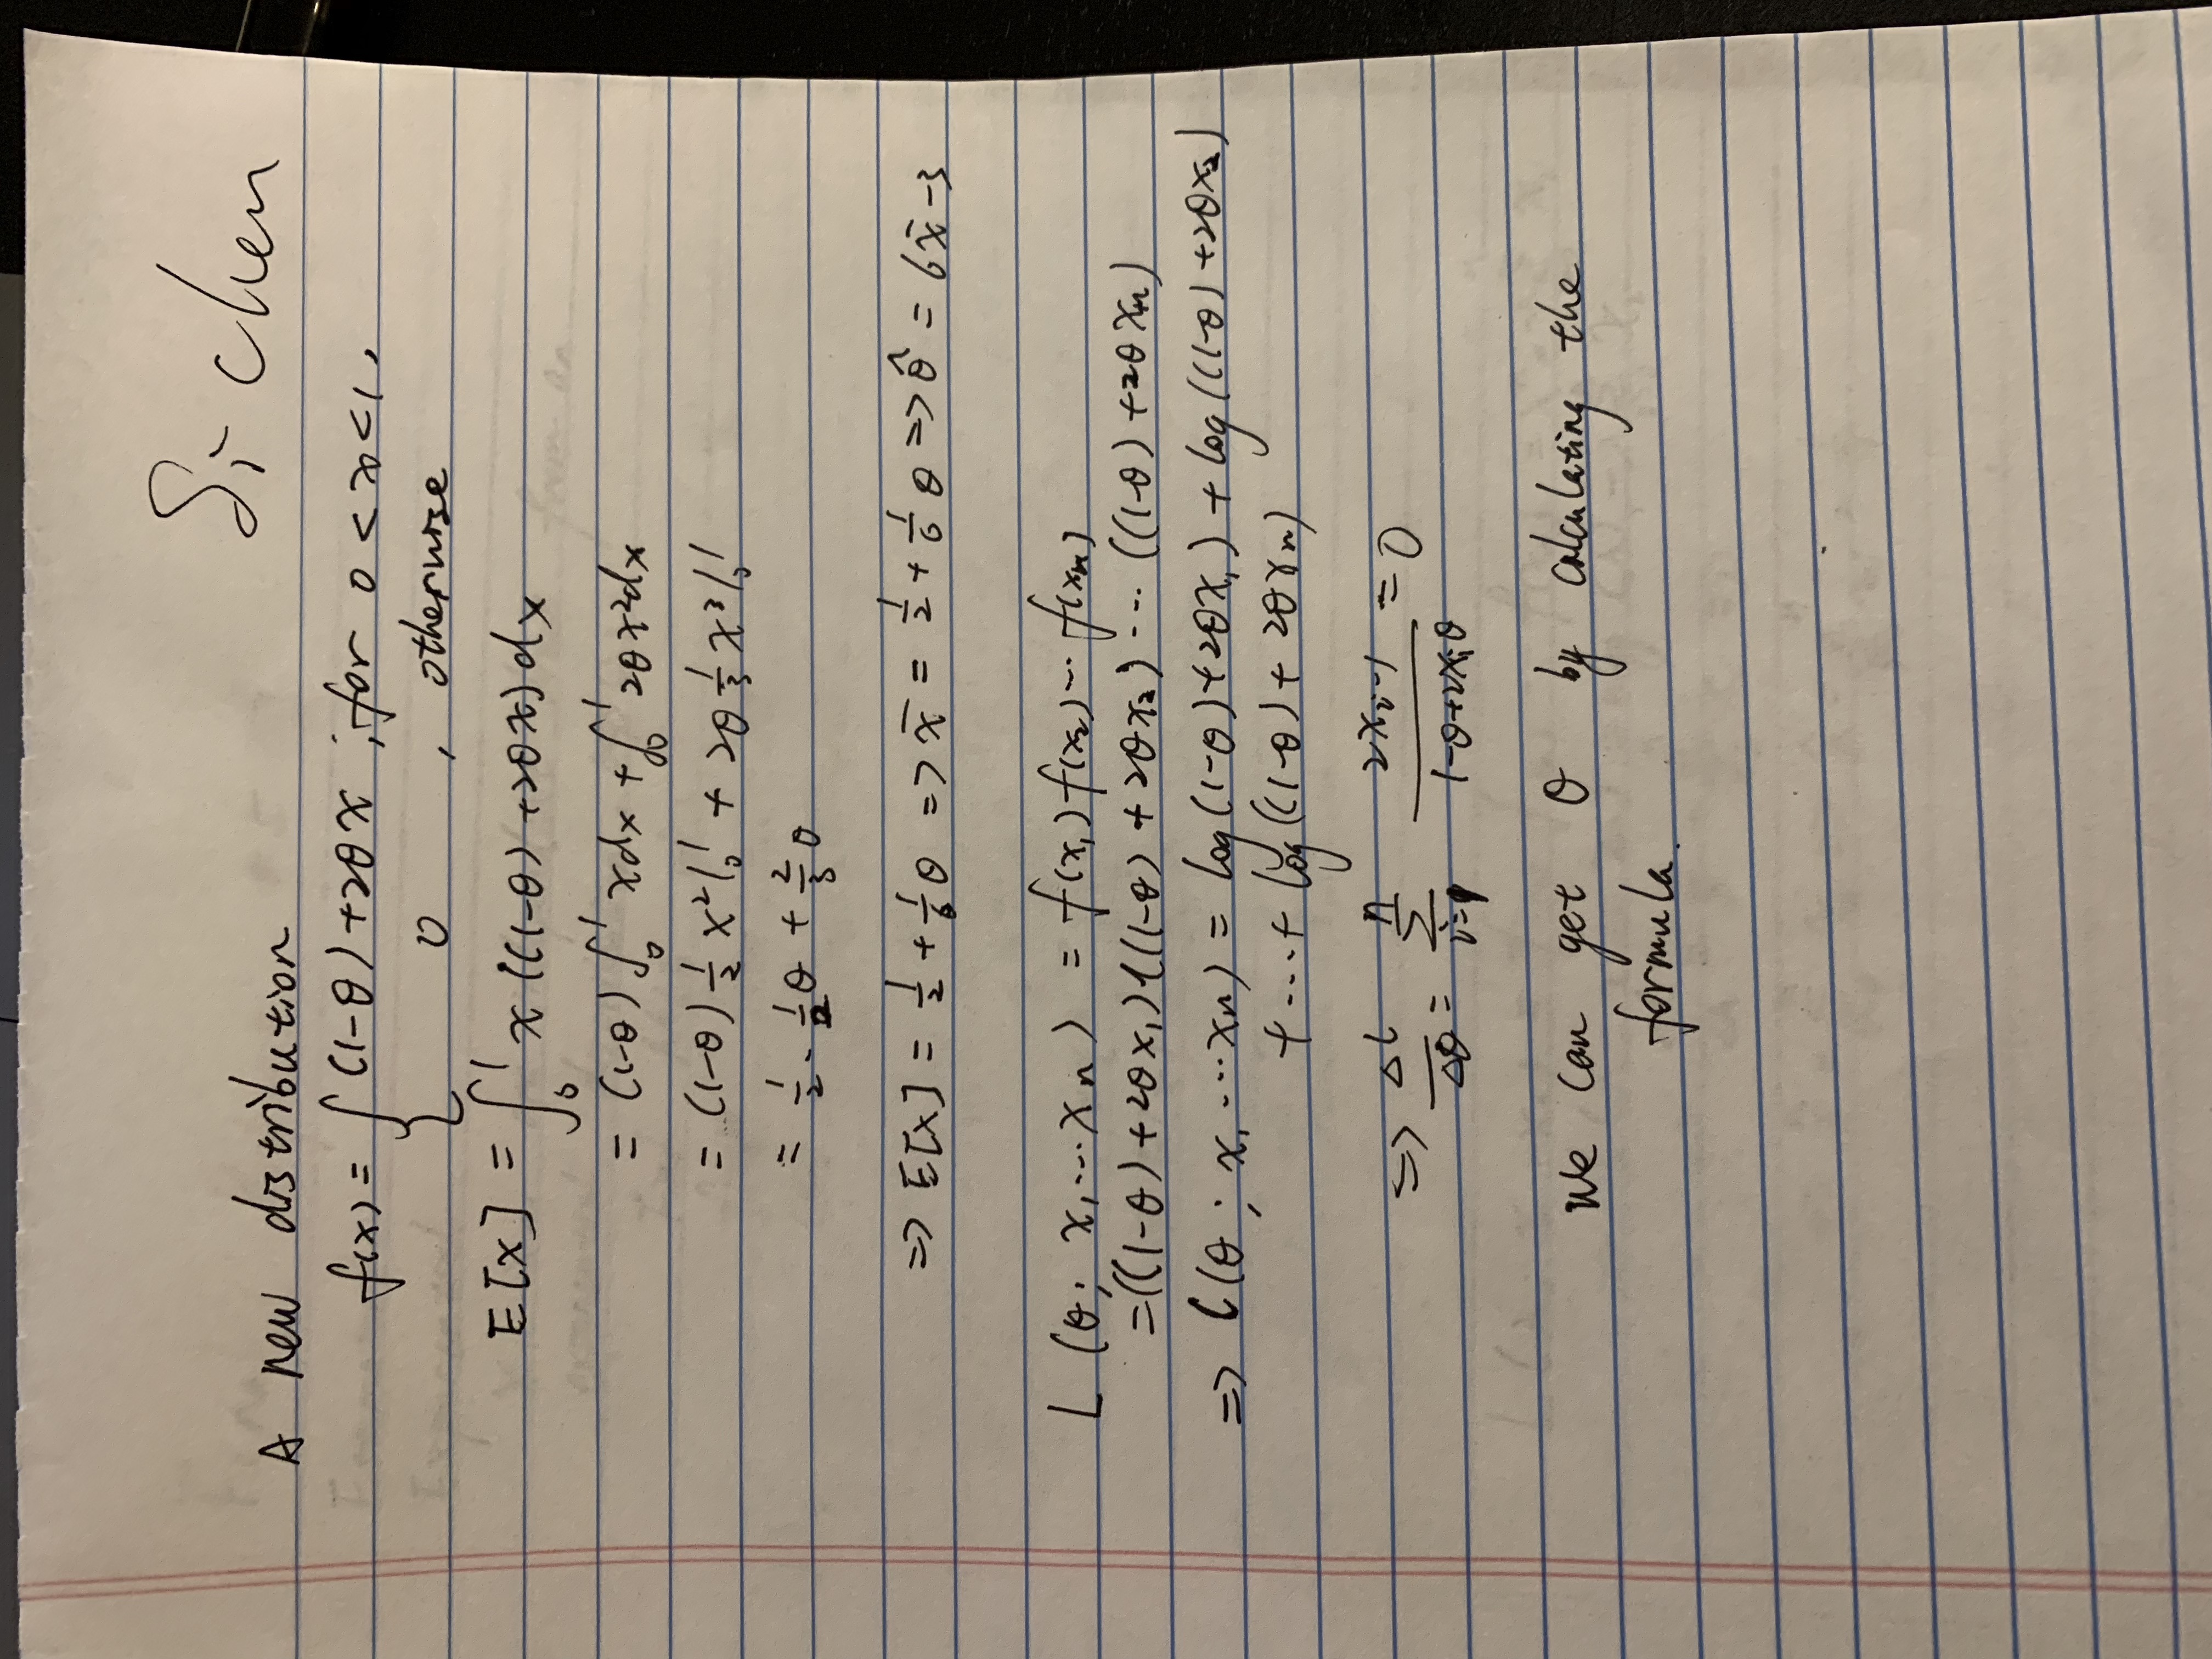 Si chen
A new distribution
f(x) = { (1-θ)+2θx , for 0 < x < 1,
0 , otherwise
E[x] = ∫₀¹ x((1-θ)+2θx)dx
= (1-θ)∫₀¹ xdx + ∫₀¹ 2θx²dx
= (1-θ) 1/2 x²|₀¹ + 2θ 1/3 x³|₀¹
= 1/2 - 1/2 θ + 2/3 θ
=> E[x] = 1/2 + 1/6 θ => x̄ = 1/2 + 1/6 θ => θ̂ = 6x̄-3
L (θ; x₁...xₙ) = f(x₁)f(x₂)...f(xₙ)
=((1-θ)+2θx₁)((1-θ)+2θx₂)...((1-θ)+2θxₙ)
=> l(θ; x₁...xₙ) = log(1-θ)+2θx₁) + log((1-θ)+2θx₂)
+...+ log((1-θ)+2θxₙ)
=> Δl/Δθ = Σᵢ₌₁ⁿ (2xᵢ-1)/(1-θ+2xᵢθ) = 0
We can get θ by calculating the
formula.